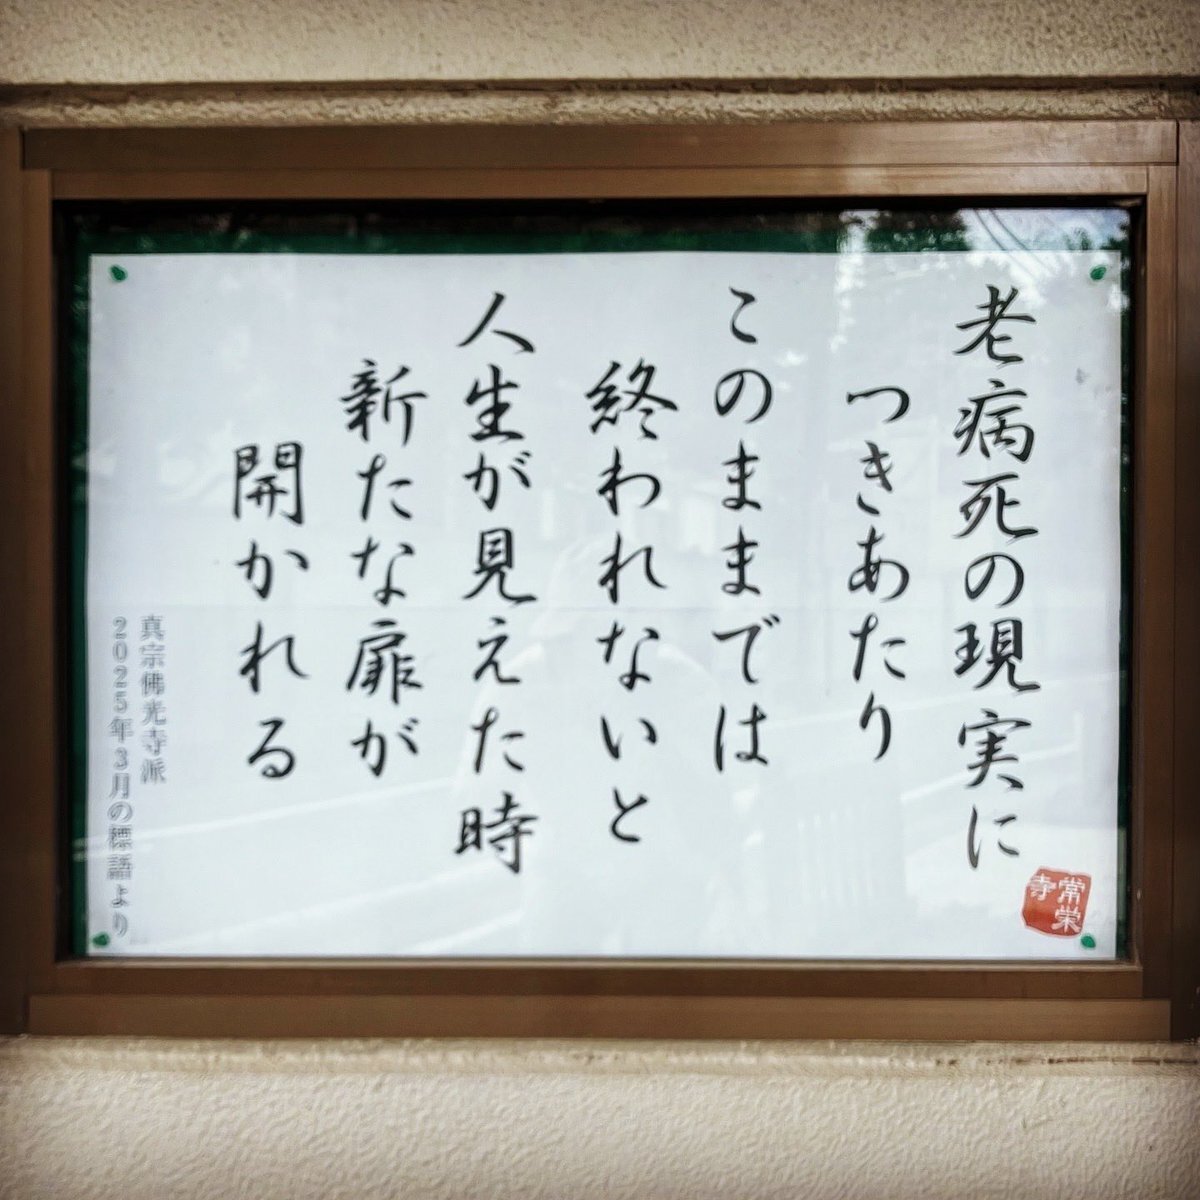 老病死の現実に
つきあたり
このままでは
終われないと
人生が見えた時
新たな扉が
開かれる
真宗佛光寺派
2025年3月の標語より
常栄
寺